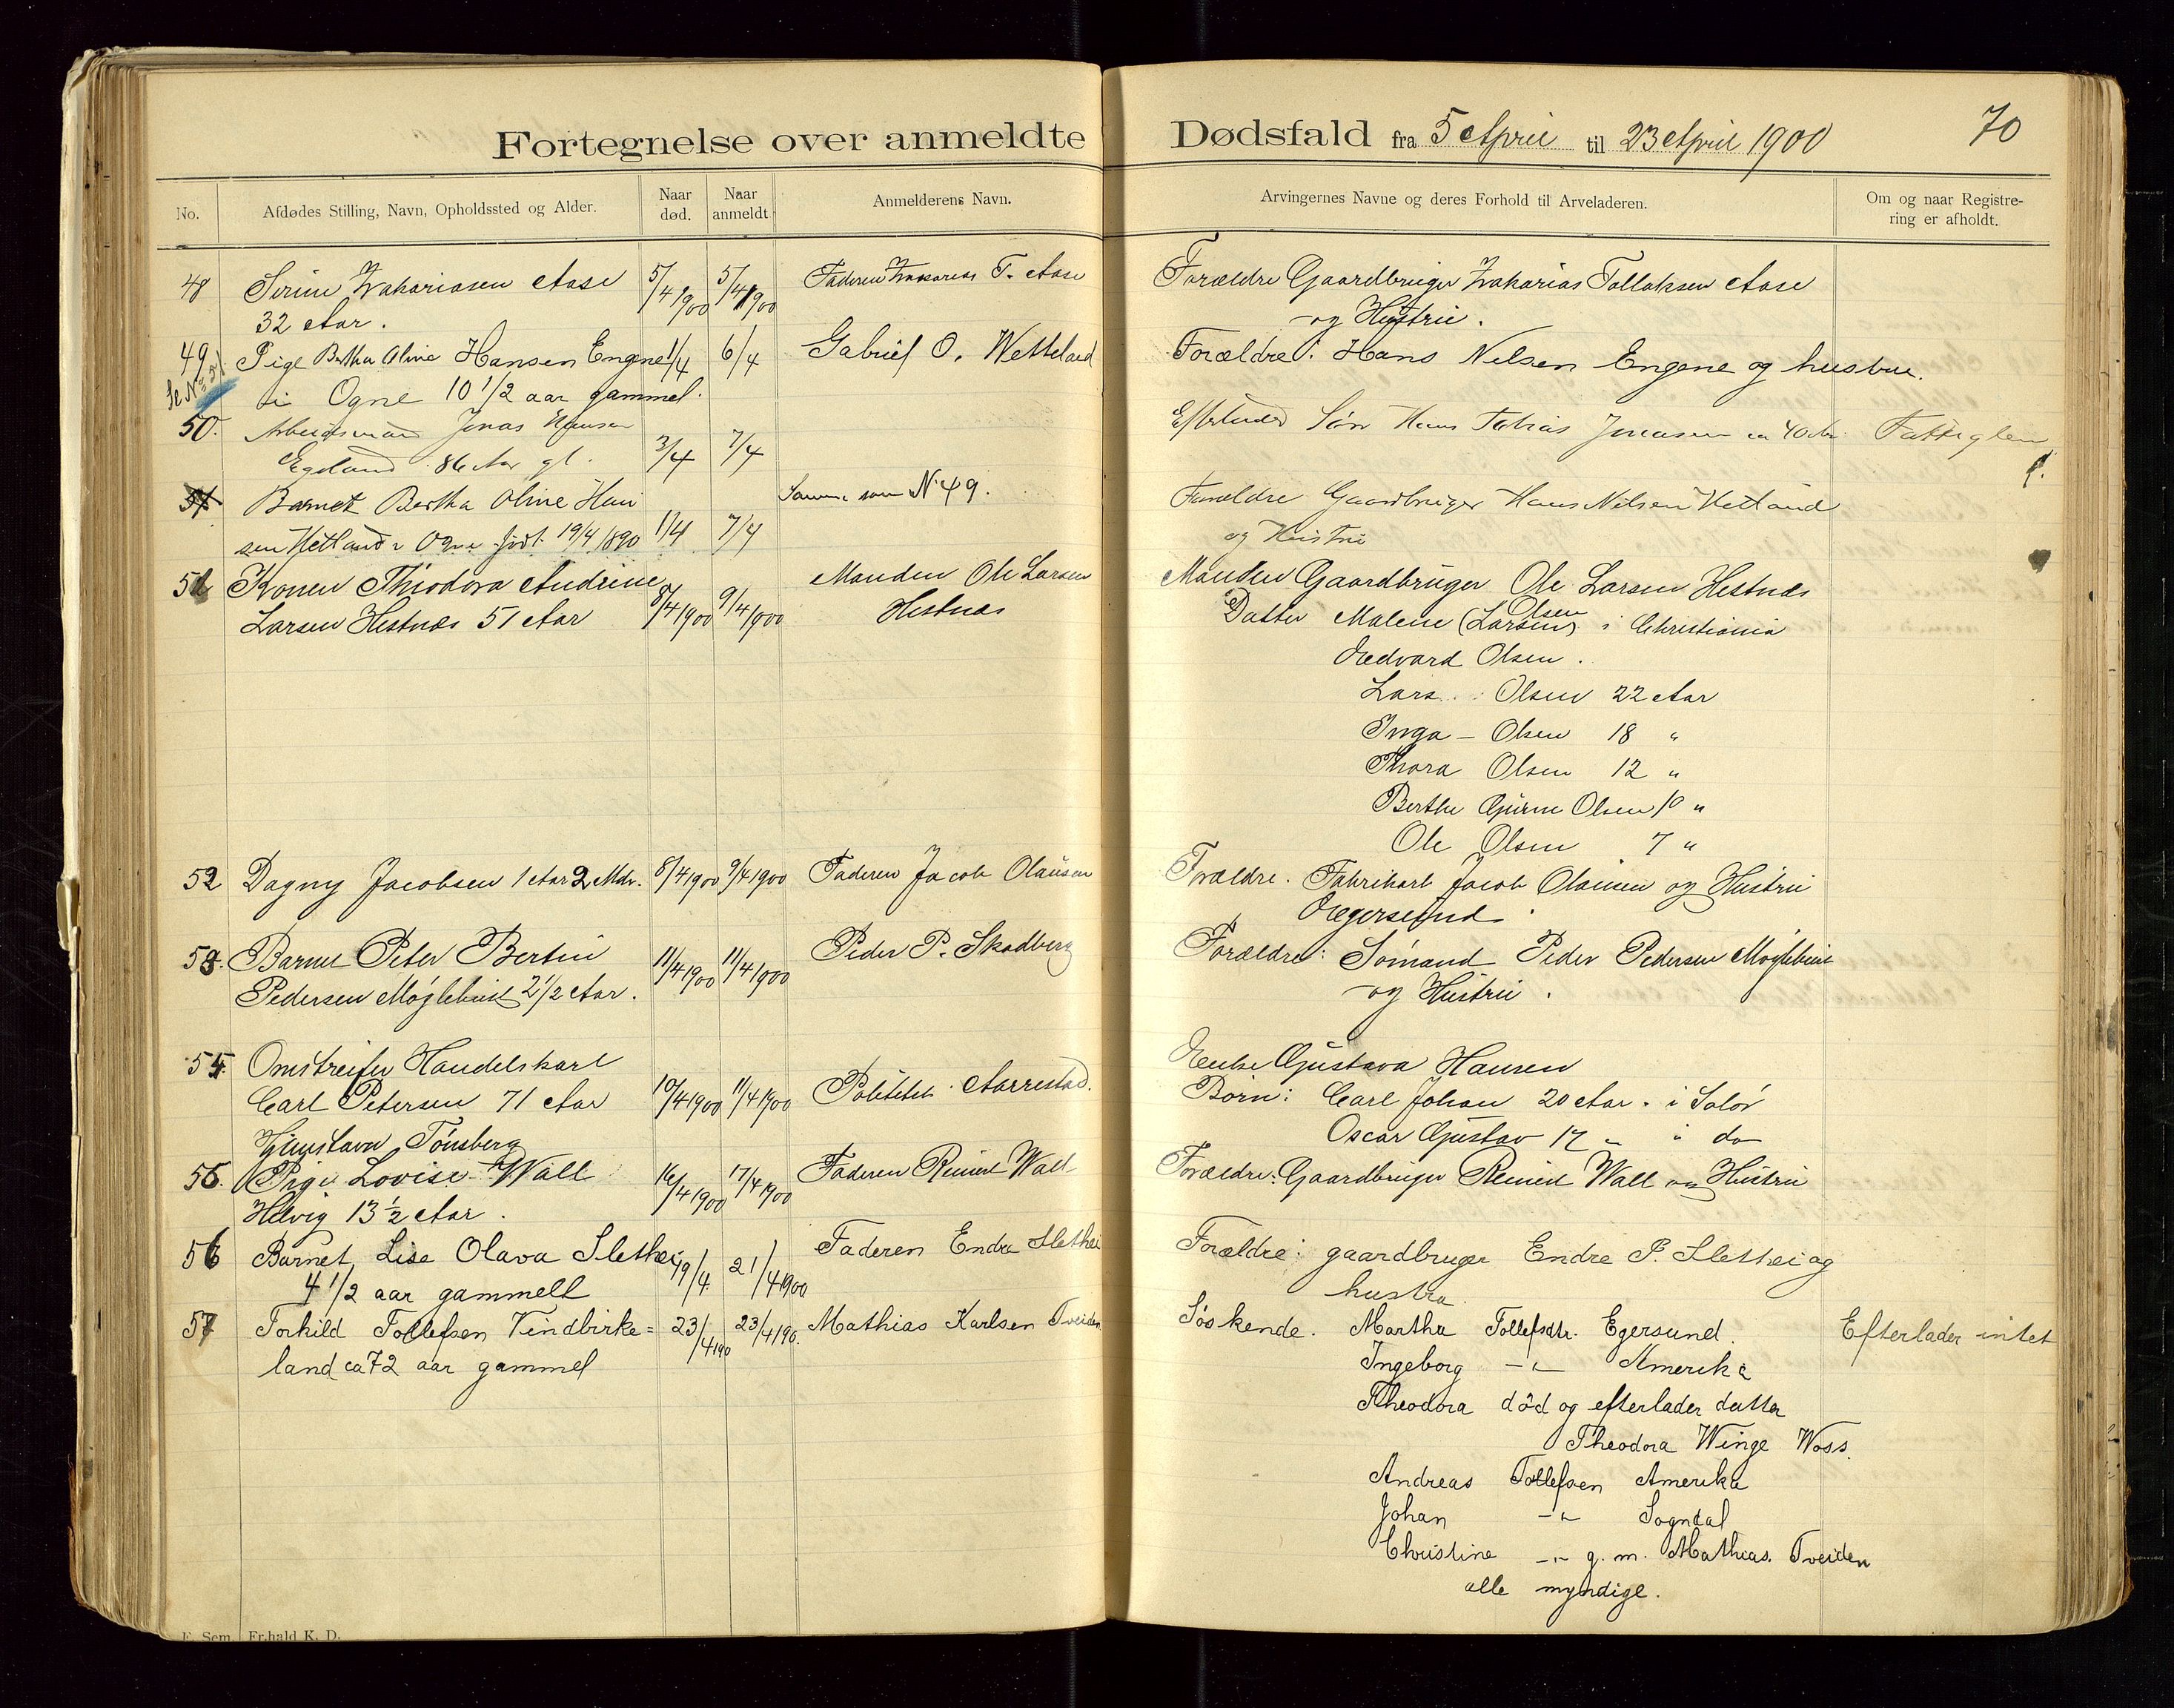 Fortegnelse over anmeldte Dødsfald fra 5 April til 23 April 1900
70
No.
Afdødes Stilling, Navn, Opholdssted og Alder.
Naar død.
Naar anmeldt.
Anmelderens Navn.
Arvingernes Navne og deres Forhold til Arveladeren.
Om og naar Registrering er afholdt.
48 Serine Zakariasen Aase 5/4 1900 5/4 1900 Faderen Zakarias T. Aase Forældre Gaardbruger Zakarias Tollaksen Aase
32 Aar. og Hustru.
49 Pige Bertha Oline Hansen Engene 1/4 6/4 Gabriel O. Wetteland Forældre: Hans Nilsen Engene og hustru.
Se No 51
i Ogne 10 1/2 aar gammel.
50. Arbeidsmand Jonas Hansen Efterlader Søn Hans Tobias Jonasen ca 40 Aar Fattiglem
Egeland 86 Aar gl. 3/4 7/4
51 Barnet Bertha Oline Han Samme som No 49. Forældre Gaardbruger Hans Nilsen Hetland
sen Hetland i Ogne født 19/4 1890 1/4 7/4 og Hustru
51 Konen Theodora Andrine 8/4 1900 9/4 1900 Manden Ole Larsen Manden Gaardbruger Ole Larsen Hestnæs
Larsen Hestnæs 51 Aar Hestnæs Datter Malene (Larsen) Olsen i Christiania
Edvard Olsen.
Lars Olsen 22 Aar
Inga - Olsen 18 "
Thora Olsen 12 "
Berthe Gurine Olsen 10 "
Ole Olsen 7 "
52 Dagny Jacobsen 1 Aar 2 Mdr. 8/4 1900 9/4 1900 Faderen Jacob Olausen Forældre. Fabrikarb Jacob Olausen og Hustru
Egersund.
53. Barnet Peter Bertin 11/4 1900 11/4 1900 Peder P. Skadberg Forældre: Sømand Peder Pedersen Møglebust
Pedersen Møglebust 2 1/2 Aar. og Hustru.
54. Omstreifer Handelskarl Enke Gustava Hansen
Carl Petersen 71 Aar 10/4 1900 11/4 1900 Politibt. Aarrestad. Børn: Carl Johan 20 Aar. i Solør
Tønsberg Oscar Gustav 17 " i do
55. Pige Lovise Wall 16/4 1900 17/4 1900 Faderen Reinert Wall Forældre: Gaardbruger Reinert Wall og Hustru
Helvig 13 1/2 Aar.
56 Barnet Lise Olava Slethei 19/4 21/4 1900 Faderen Endre Slethei Forældre: gaardbruger Endre P. Slethei og
4 1/2 aar gammell hustru
57 Torkild Tollefsen Vindbirke= 23/4 190 23/4 190 Mathias Karlsen Tveiden Søskende. Martha Tollefsdtr. Egersund. Efterlader intet
land ca 72 aar gammel Ingeborg -"- Amerika
Theodora död og efterlader datter
Theodora Winge Woss.
Andreas Tollefsen Amerika
Johan -"- Sogndal
Christine -"- g. m. Mathias. Tveiden
alle myndige.
F. Sem, Fr.hald K. D.